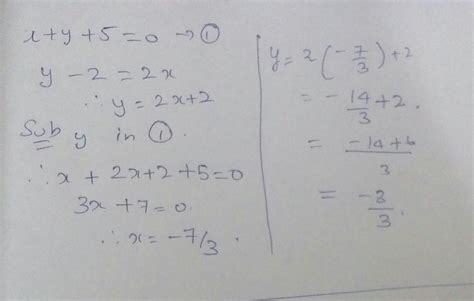 x+y+5=0 → ①
y-2=2x
∴ y=2x+2
Sub y in ①.
∴ x + 2x+2+5=0
3x+7=0.
∴ x=-7/3.
y= 2(-7/3)+2
= -14/3+2.
= -14+6/3
= -8/3.